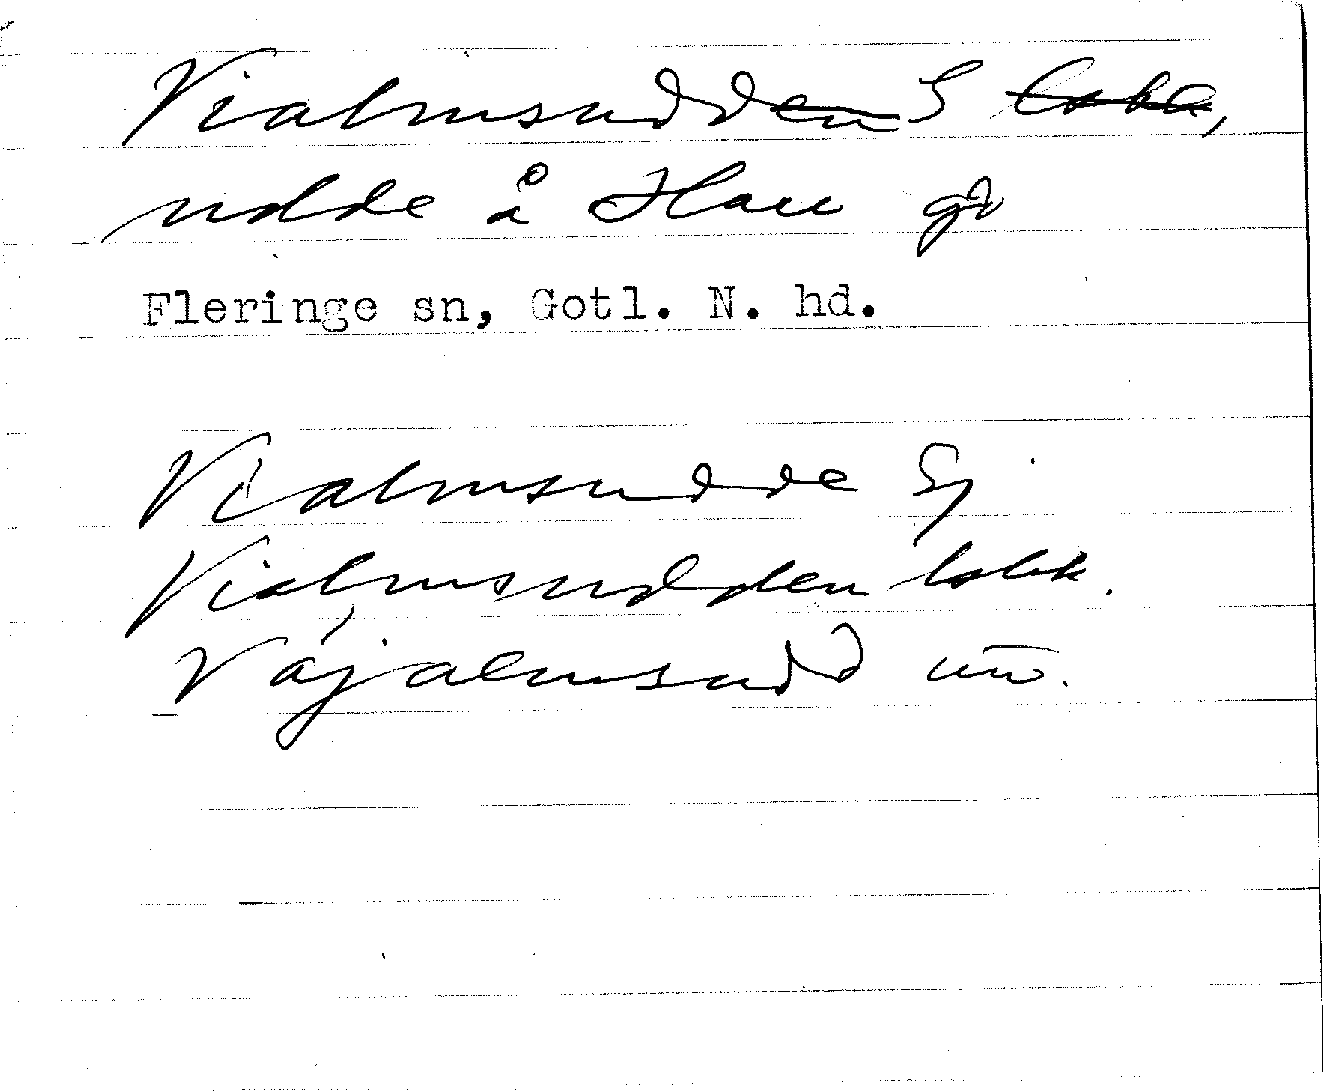 Vialmsudden S lokk,
udde å Hau gd
Fleringe sn, Gotl. N. hd.
Vialmsudde Sj
Vialmsudden lokk.
Väjalmsudd